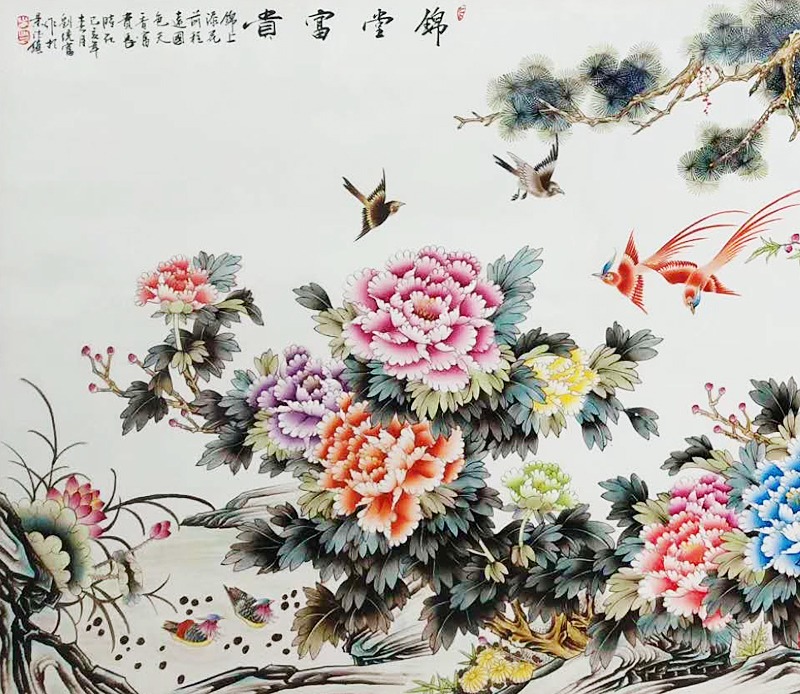 錦堂富貴
錦上
添花
前程
遠國
色天
香富
貴春
時在
己亥年
春月
劉
富
作於
景德鎮